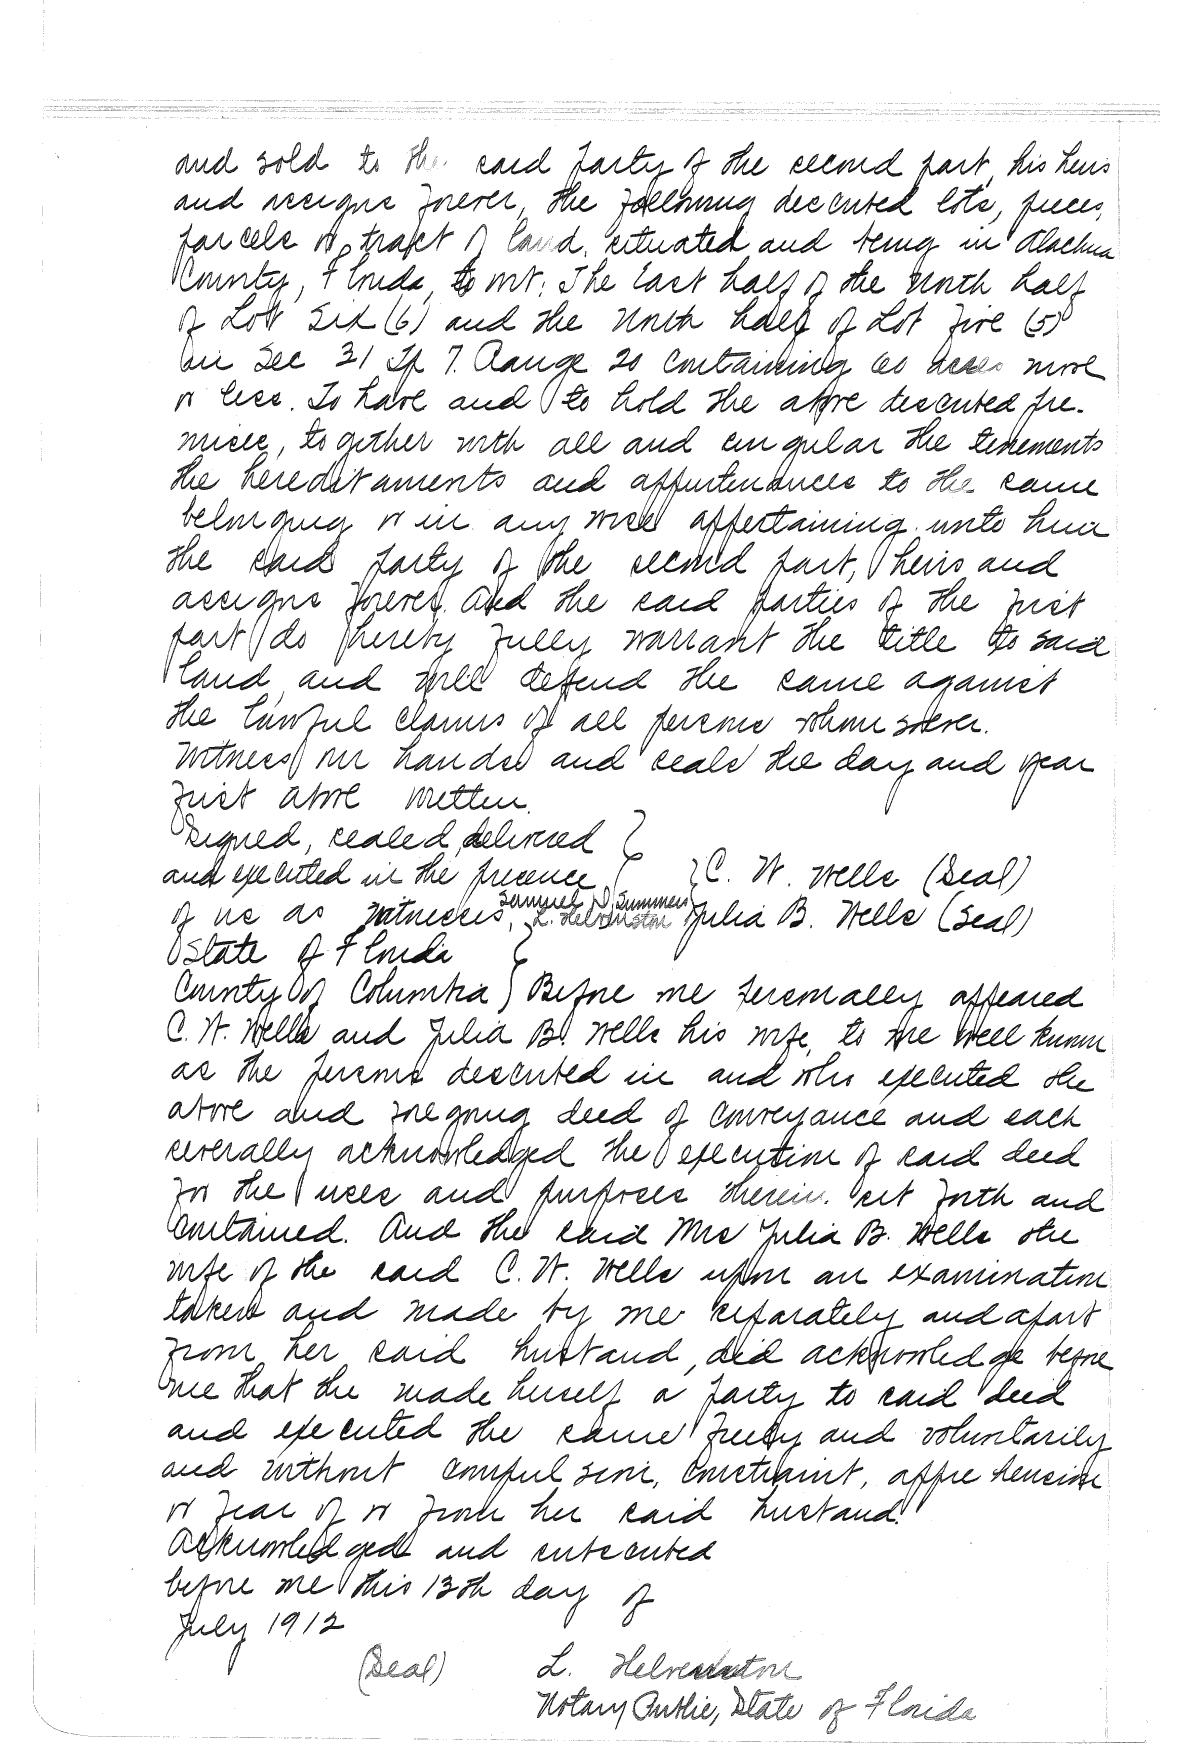 and sold to the said party of the second part, his heirs
and assigns forever, the following described lots, pieces,
parcels or tract of land, situated and being in Alachua
County, Florida, to wit: The East half of the North half
of Lot Six (6) and the North half of Lot Five (5)
in Sec 31 Tp 7. Range 20 containing 60 acres more
or less. To have and to hold the above described pre-
mises, together with all and singular the tenements
the hereditaments and appurtenances to the same
belonging or in any wise appertaining unto him
the said party of the second part, heirs and
assigns forever. And the said parties of the first
part do hereby fully warrant the title to said
land, and will defend the same against
the lawful claims of all persons whomsoever.
Witness our hands and seals the day and year
first above written.
Signed, sealed, delivered
and executed in the presence } C. W. Wells (Seal)
of us as witnesses, Samuel D. Summers
L. Helvenston Julia B. Wells (Seal)
State of Florida }
County of Columbia } Before me personally appeared
C. W. Wells and Julia B. Wells his wife, to me well known
as the persons described in and who executed the
above and foregoing deed of conveyance and each
severally acknowledged the execution of said deed
for the uses and purposes therein set forth and
contained. And the said Mrs Julia B. Wells the
wife of the said C. W. Wells upon an examination
taken and made by me separately and apart
from her said husband, did acknowledge before
me that she made herself a party to said deed
and executed the same freely and voluntarily
and without compulsion, constraint, apprehension
or fear of or from her said husband.
Acknowledged and subscribed
before me this 13th day of
July 1912
(Seal) L. Helvenston
Notary Public, State of Florida